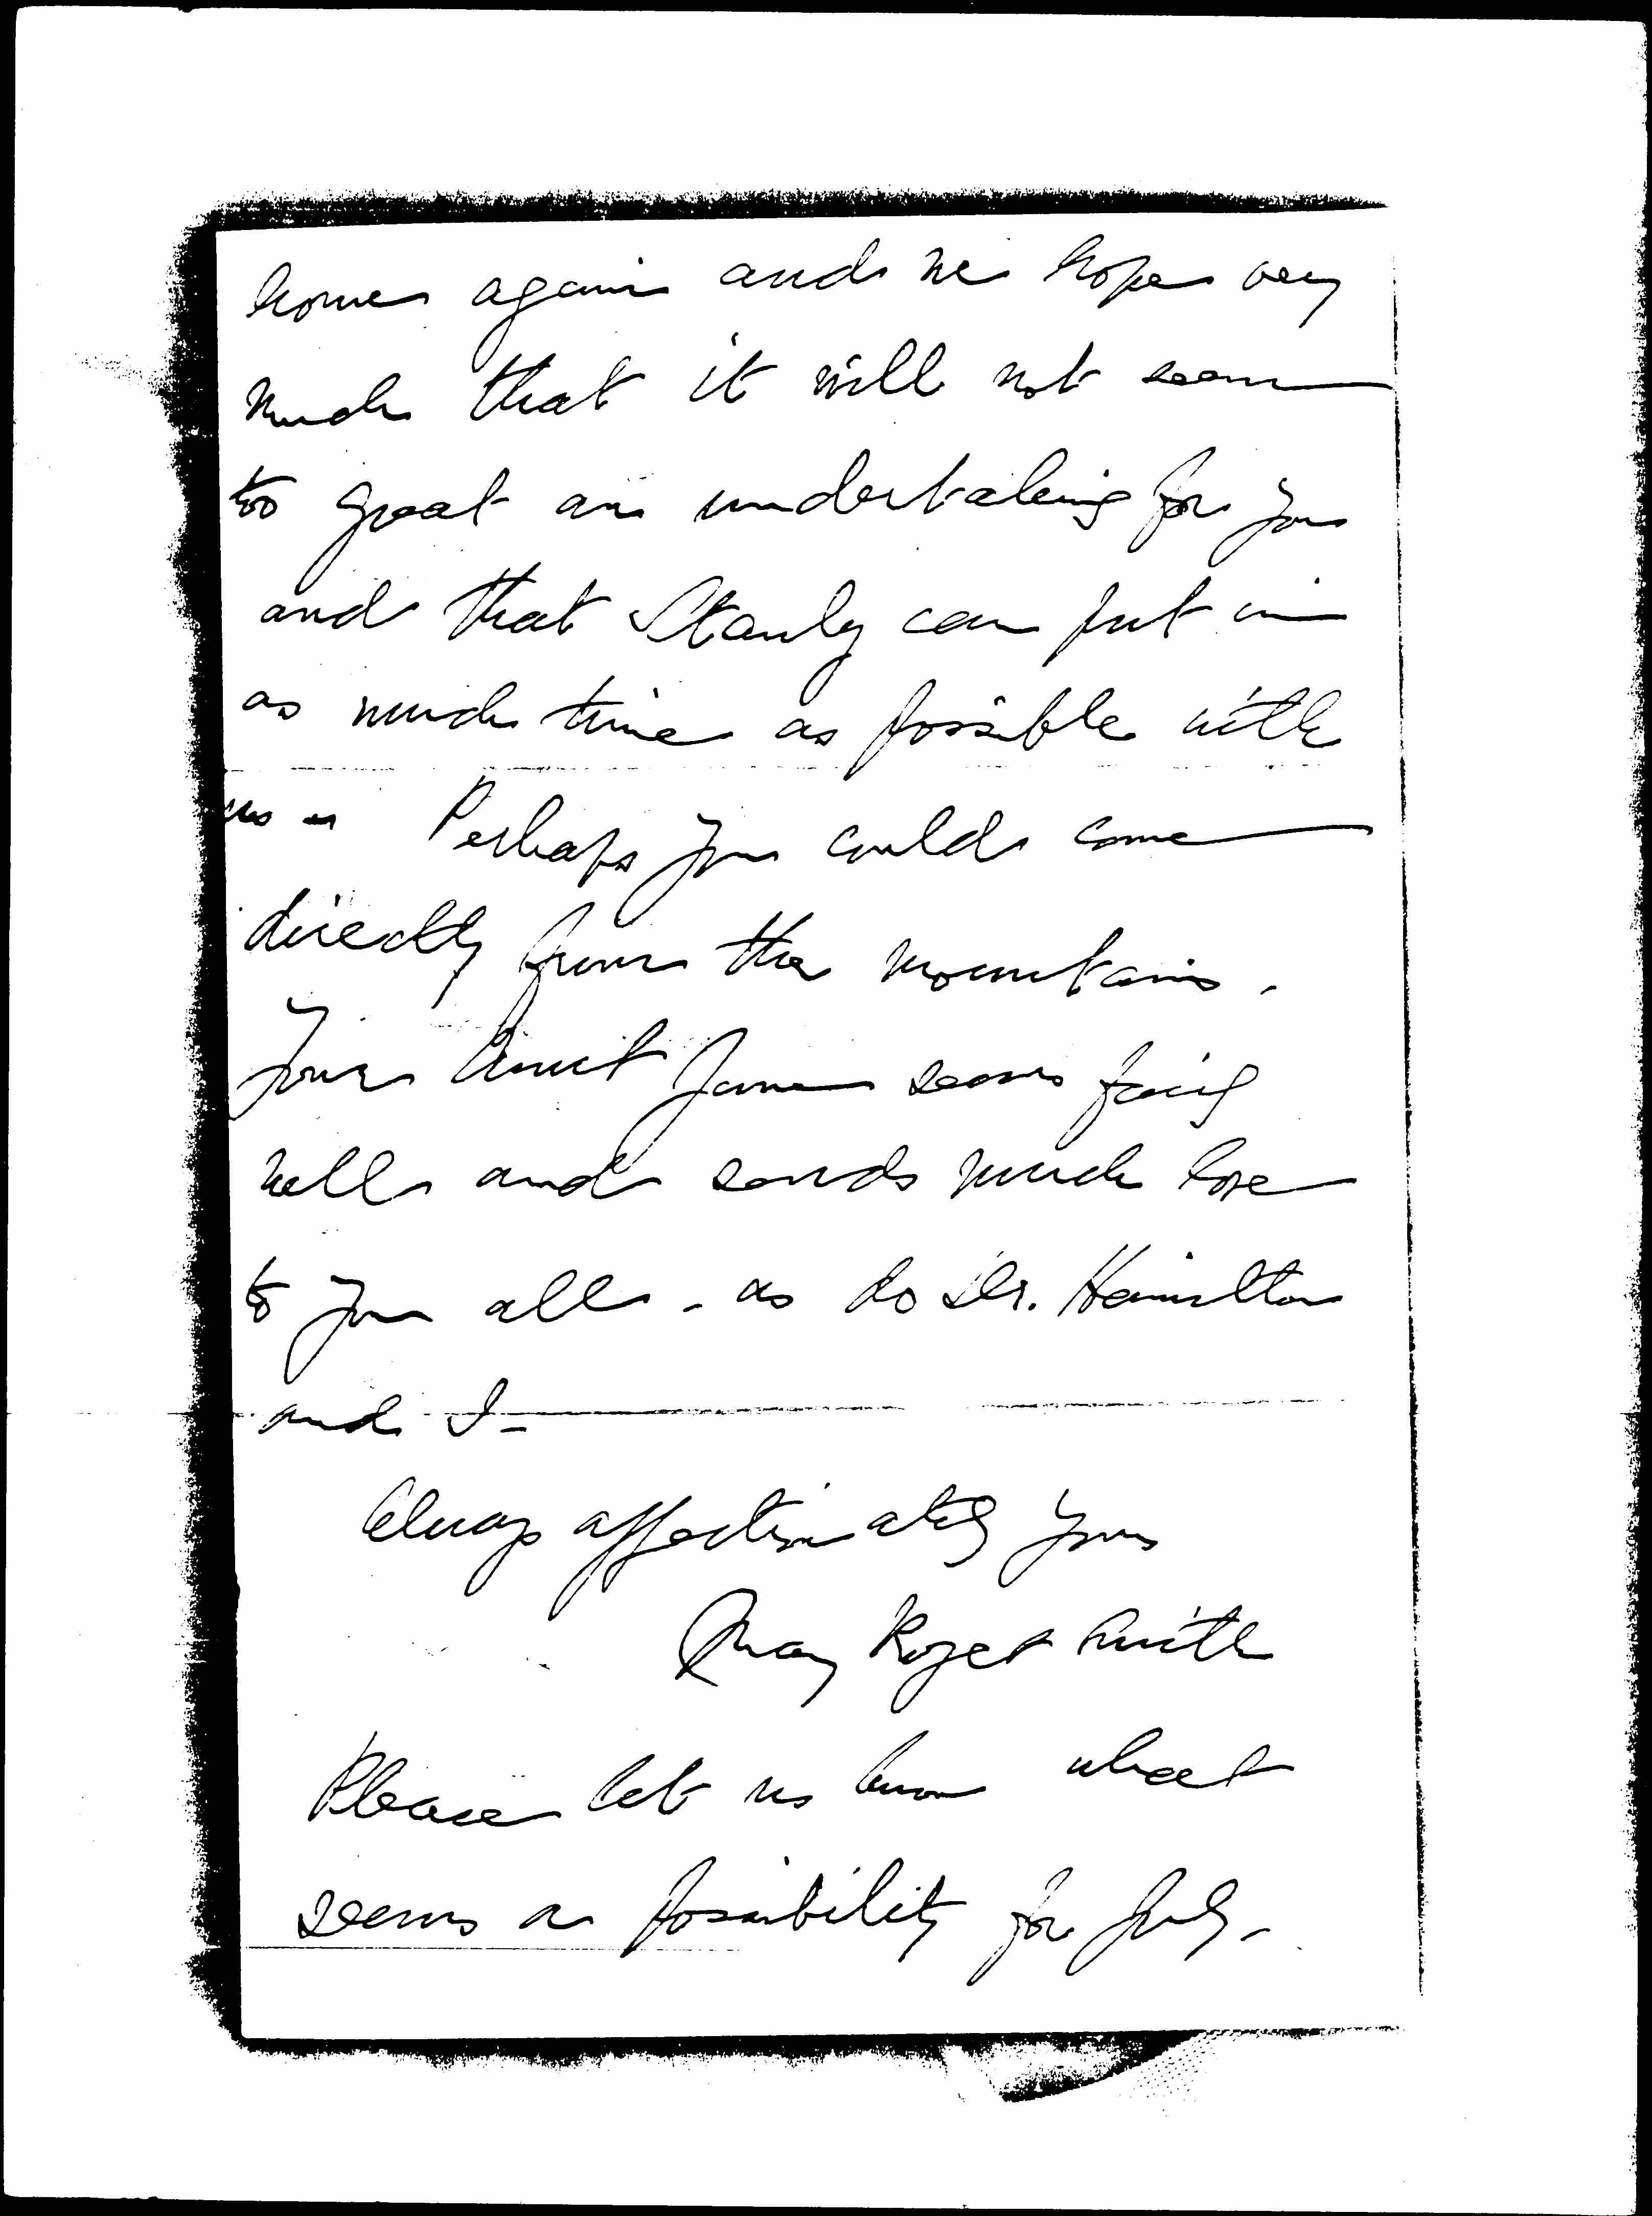 home again and we hope very
much that it will not seem
too great an undertaking for you
and that Stanley can put in
as much time as possible with
us - Perhaps you could come
directly from the mountains.
Your Aunt Jane seems fairly
well and sends much love
to you all - as do Dr. Hamilton
and I -
Always affectionately yours
Mary Rozet Smith
Please let us know what
seems a possibility for July -